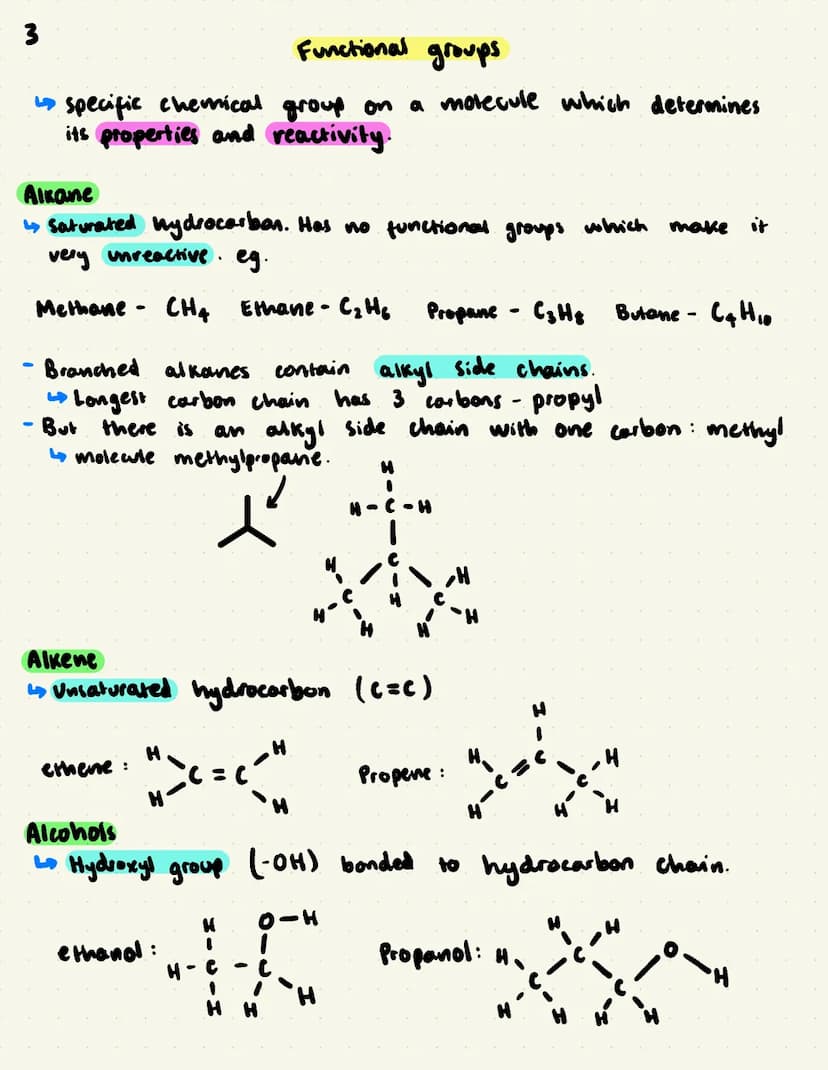 3
Functional groups
↳ specific chemical group on a molecule which determines
its properties and reactivity.
Alkane
↳ Saturated hydrocarbon. Has no functional groups which make it
very unreactive. eg.
Methane - CH₄ Ethane - C₂H₆ Propane - C₃H₈ Butane - C₄H₁₀
- Branched alkanes contain alkyl side chains.
↳ Longest carbon chain has 3 carbons - propyl
- But there is an alkyl side chain with one carbon: methyl
↳ molecule methylpropane.
H
H - C - H
C
H H
C H C
H H
H H
Alkene
↳ Unsaturated hydrocarbon (C=C)
H
ethene: H H Propene: H C H
C = C C C
H H H H H
Alcohols
↳ Hydroxyl group (-OH) bonded to hydrocarbon chain.
H O-H H H
ethanol: H - C - C Propanol: H C O
H H H C C H
H H H H